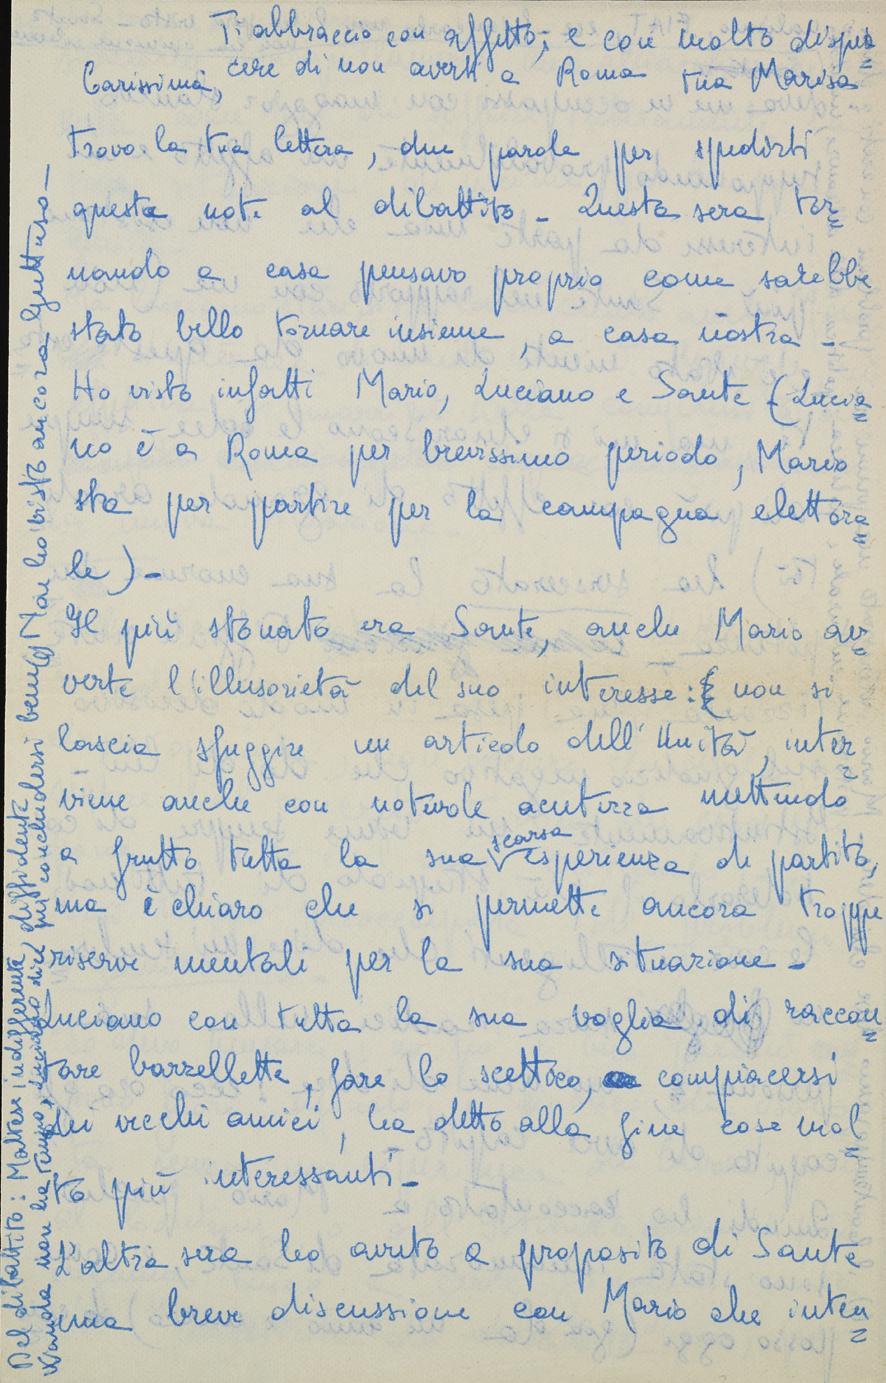 Ti abbraccio con affetto, e con molto dispia
cere di non averti a Roma tua Marisa
Carissima,
trovo la tua lettera, due parole per spedirti
queste note al dibattito - Questa sera tor
nando a casa pensavo proprio come sarebbe
stato bello tornare insieme, a casa nostra -
Ho visto infatti Mario, Luciano e Sante (Lucia
no è a Roma per brevissimo periodo, Mario
sta per partire per la campagna elettora
le) -
Il più stonato era Sante, anche Mario av
verte l'illusorietà del suo interesse: non si
lascia sfuggire un articolo dell'Unità, inter
viene anche con notevole acutezza mettendo
a frutto tutta la sua scarsa esperienza di partito,
ma è chiaro che si permette ancora troppe
riserve mentali per la sua situazione -
Luciano con tutta la sua voglia di raccon
tare barzellette, fare lo scettico, compiacersi
dei vecchi amici, ha detto alla fine cose mol
to più interessanti -
L'altra sera ho avuto a proposito di Sante
una breve discussione con Mario che inten
Del dibattito: Maltese indifferente, diffidente
Wanda non ha tempo, Luciano dice può concludersi bene (Non ho visto ancora Guttuso -